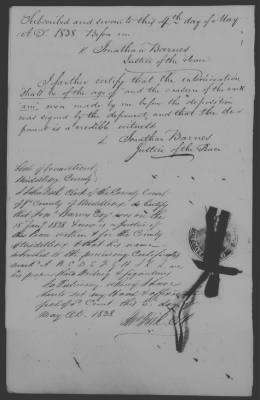 Subscribed and sworn to this 4th day of May
A.D. 1838 Before me
Jonathan Barnes
Justice of the Peace
I further certify that the interlineation
"shall be of the age of" and the erasure of the word
"am" were made by me before the deposition
was signed by the deponent, and that the de-
ponent is a credible witness
Jonathan Barnes
Justice of the Peace
State of Connecticut
Middlesex County
I John Clerk of the County Court
of County of Middlesex do Certify
that Jon. Barnes Esq. was on the
1838 & now is a Justice of
the Peace within & for the County
of Middlesex & that his name
subscribed to the preceding Certificates
mark A B C D E F G H I K L are
in his proper Hand Writing & Signature
In Testimony whereof I have
hereto set my Hand & affixed the
seal of Court this 5th day of
May AD. 1838